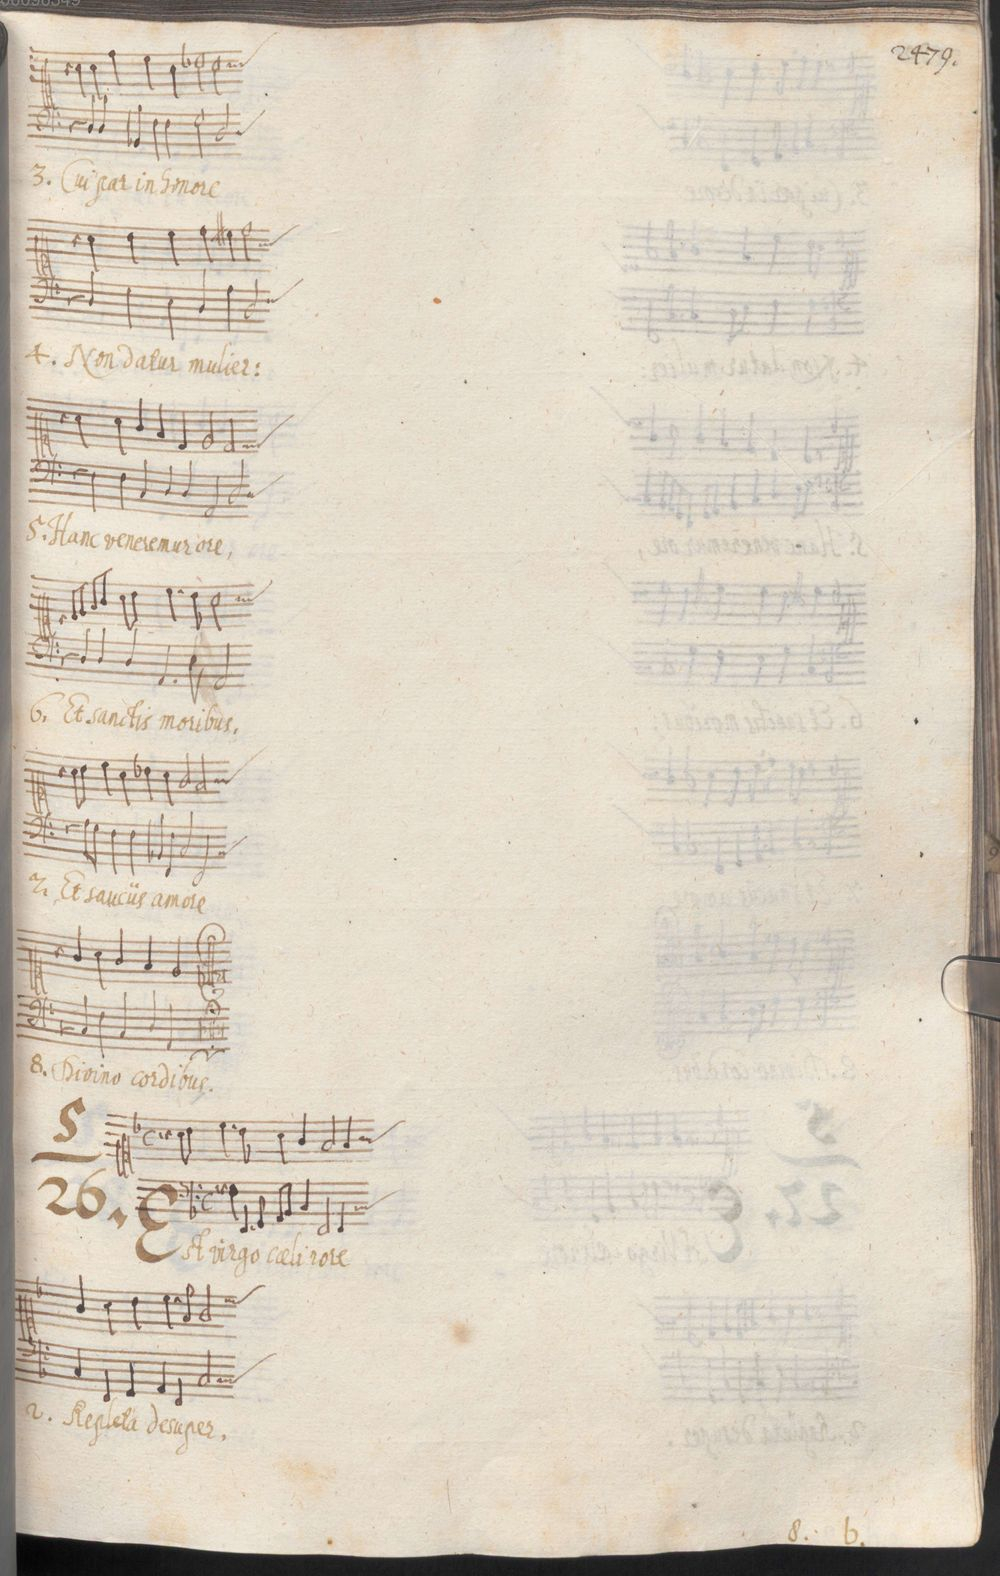 2479.
3. Cui par in honore
4. Non datur mulier:
5. Hanc veneremur ore,
6. Et sanctis moribus,
7. Et sauciis amore
8. Divino cordibus.
5
26. Est virgo cœli rore
2. Repleta desuper.
8. b.